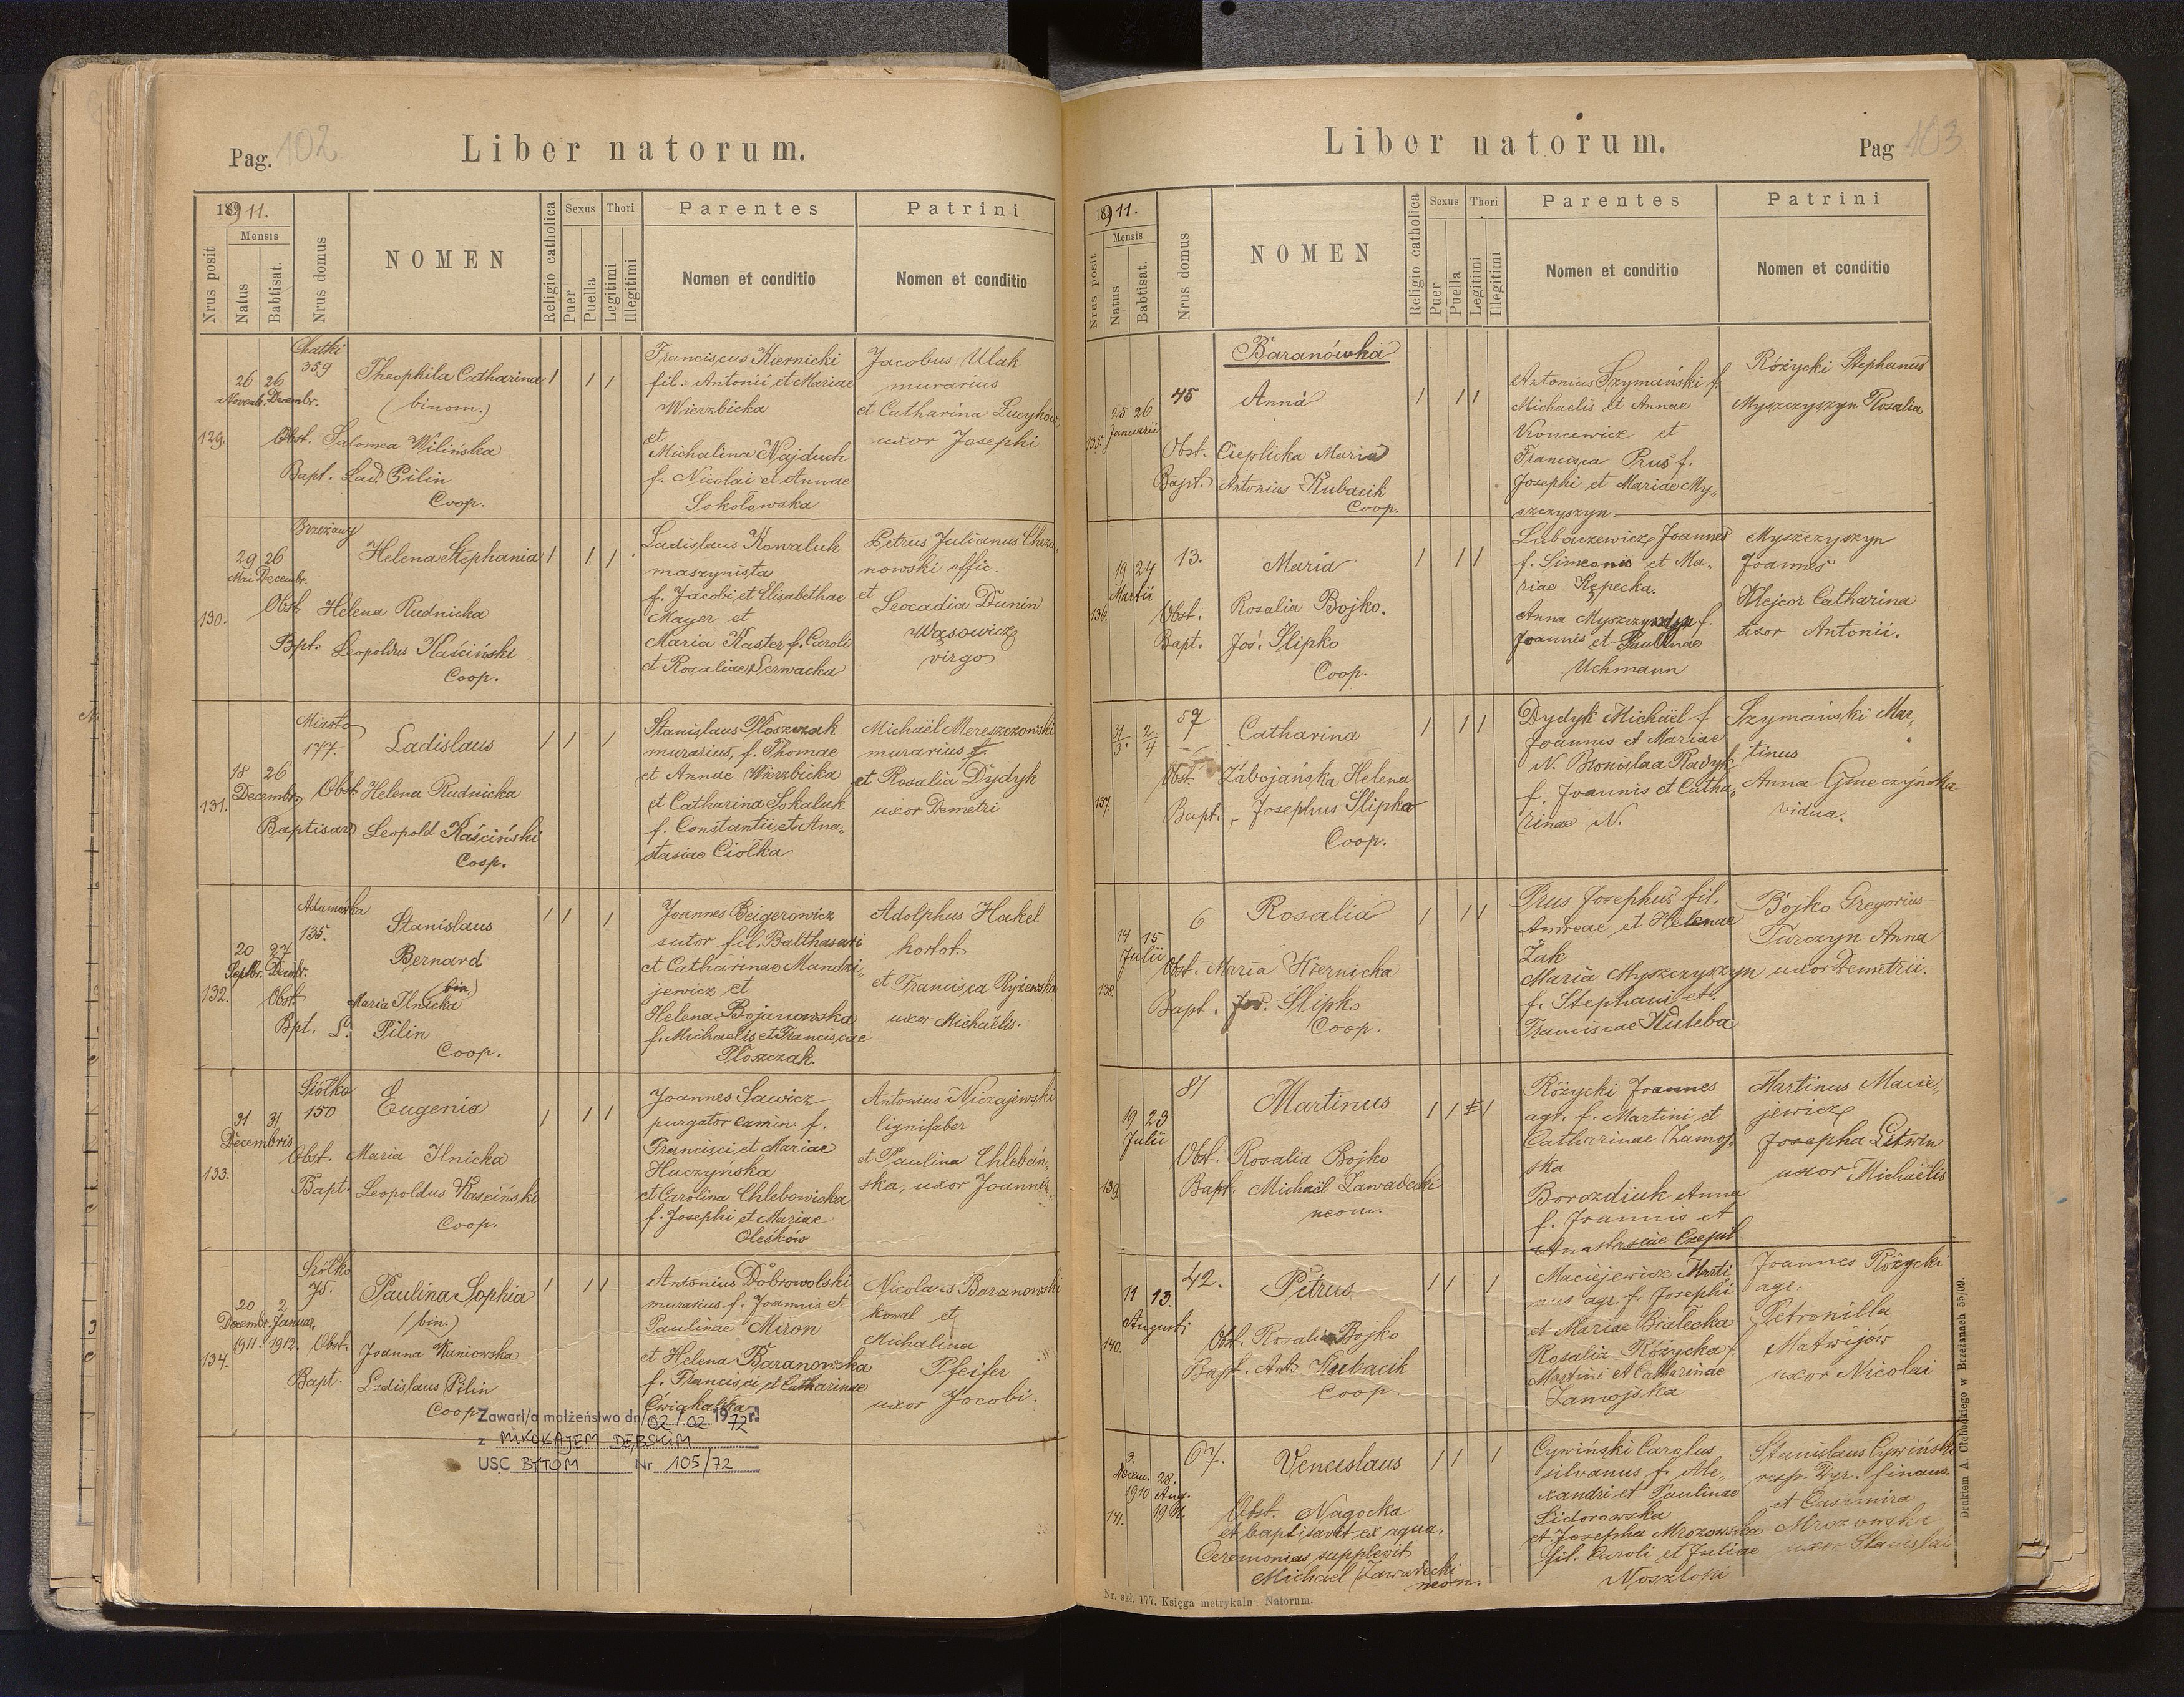 Pag. 102
Liber natorum.
1911.
Mensis
Nrus posit
Natus
Babtisat.
Nrus domus
NOMEN
Religio catholica
Sexus
Puer
Puella
Thori
Legitimi
Illegitimi
Parentes
Nomen et conditio
Patrini
Nomen et conditio
129.
26 26
Novembr. Decembr.
Chatki
359
Theophila Catharina
(binom.)
Obst. Salomea Wilińska
Bapt. Lad. Pilin
Coop.
Franciscus Kiernicki
fil. Antonii et Mariae
Wierzbicka
et
Michalina Najduch
f. Nicolai et Annae
Sokolowska
Jacobus Ulak
murarius
et Catharina
uxor Josephi
130.
29 26
Mai Decembr.
Brzeżany
Helena Stephania
Obst. Helena Rudnicka
Bpt. Leopoldus Kaściński
Coop.
Ladislaus Kowaluk
maszynista
f. Jacobi et Elisabethae
Mayer et
Maria Kaster f. Caroli
et Rosaliae Serwacka
Petrus Julianus Chrza
nowski offic.
et Leocadia Dunin
Wąsowicz
virgo
131.
18 26
Decembr.
Miasto
177.
Ladislaus
Obst. Helena Rudnicka
Baptisav. Leopold Kaściński
Coop.
Stanislaus Płoszczak
murarius, f. Thomae
et Annae Wierzbicka
et Catharina Sokaluk
f. Constantii et Ana-
stasiae Ciołka
Michaël Mereszczowski
murarius
et Rosalia Dydyk
uxor Demetri
132.
20 27
Septbr. Decmbr.
Adamówka
135.
Stanislaus
Bernard
(bin.)
Obst. Maria Ilnicka
Bpt. L. Pilin
Coop.
Joannes Beigerowicz
sutor fil. Balthasari
et Catharinae Mandzi-
jewicz et
Helena Bojanowska
f. Michaelis et Franciscae
Płoszczak.
Adolphus Hakel
hortot.
et Francisca Ryżewska
uxor Michaëlis.
133.
31 31
Decembris
Siółko
150
Eugenia
Obst. Maria Ilnicka
Bapt. Leopoldus Kaściński
Coop.
Joannes Sawicz
purgator camin. f.
Francisci et Mariae
Huczyńska
et Carolina Chlebowicka
f. Josephi et Mariae
Oleśków
Antonius Niczajewski
lignifaber
et Paulina Chlebań-
ska, uxor Joannis.
134.
20 2
Decembr. Januar.
1911. 1912.
Siółko
75.
Paulina Sophia
(bin.)
Obst. Joanna Kaniowska
Bapt. Ladislaus Pilin
Coop.
Antonius Dobrowolski
murarius f. Joannis et
Paulinae Miron
et Helena Baranowska
f. Francisci et Catharinae
Nicolaus Baranowski
kowal et
Michalina
Pfeifer
uxor Jacobi.
Zawarł/a małżeństwo dn. 02/02 1972 r.
z MIKOŁAJEM DĘBSKIM
USC BYTOM Nr 105/72
Liber natorum.
Pag 103
1911.
Mensis
Nrus posit
Natus
Babtisat.
Nrus domus
NOMEN
Religio catholica
Sexus
Puer
Puella
Thori
Legitimi
Illegitimi
Parentes
Nomen et conditio
Patrini
Nomen et conditio
Baranówka
135.
25 26
Januarii
45
Anna
Obst. Cieplicka Maria
Bapt. Antonius Kubacik
Coop.
Antonius Szymański f.
Michaelis et Annae
Koncewicz et
Francisca Prus f.
Josephi et Mariae My-
szczyszyn
Różycki Stephanus
Myszczyszyn Rosalia
136.
19 24
Martii
13.
Maria
Obst. Rosalia Bojko.
Bapt. Jos. Slipko
Coop.
Lubaczewicz Joannes
f. Simeonis et Ma-
riae Kępecka.
Anna Myszczyszyn f.
Joannis et Paulinae
Uchmann
Myszczyszyn
Joannes
Wejcor Catharina
uxor Antonii.
137.
31/3. 2/4
57
Catharina
Obst. Zabojańska Helena
Bapt. Josephus Slipko
Coop.
Dydyk Michaël f.
Joannis et Mariae
N. Bronislaa Radyk
f. Joannis et Catha-
rinae N.
Szymański Mar-
tinus
Anna Gmeczyńska
vidua.
138.
14 15
Julii
6
Rosalia
Obst. Maria Kiernicka
Bapt. Jos. Slipko
Coop.
Prus Josephus fil.
Andreae et Helenae
Żak
Maria Myszczyszyn
f. Stephani et
Franciscae Kuleba
Bojko Gregorius
Turczyn Anna
uxor Demetrii.
139.
19 23
Julii
87
Martinus
Obst. Rosalia Bojko
Bapt. Michaël Zawadecki
neom.
Różycki Joannes
agr. f. Martini et
Catharinae Zamoj-
ska
Borozdiuk Anna
f. Joannis et
Anastasiae Czepil
Martinus Macie-
jewicz
Josepha Litwin
uxor Michaëlis
140.
11 13.
Augusti
42.
Petrus
Obst. Rosalia Bojko
Bapt. Ant. Kubacik
Coop
Maciejewicz Marti
nus agr. f. Josephi
et Mariae Białecka
Rosalia Różycka f.
Martini et Catharinae
Zamojska
Joannes Różycki
agr.
Petronilla
Matwijów
uxor Nicolai
141.
3. Decem. 1910
28. Aug. 1911.
67.
Venceslaus
Obst. Nagocka
et baptisavit ex aqua.
Ceremonias supplevit
Michaël Zawadecki
neom.
Cywiński Carolus
silvanus f. Ale-
xandri et Paulinae
Sidorowska
et Josepha Mrozowska
fil. Caroli et Juliae
Noszloki
Stanislaus Cywiński
resp. Dyr. finans.
et Casimira
Mrozowska
uxor Stanislai
Nr. skł. 177. Księga metrykaln Natorum.
Drukiem A. Cichockiego w Brzeżanach 55/09.